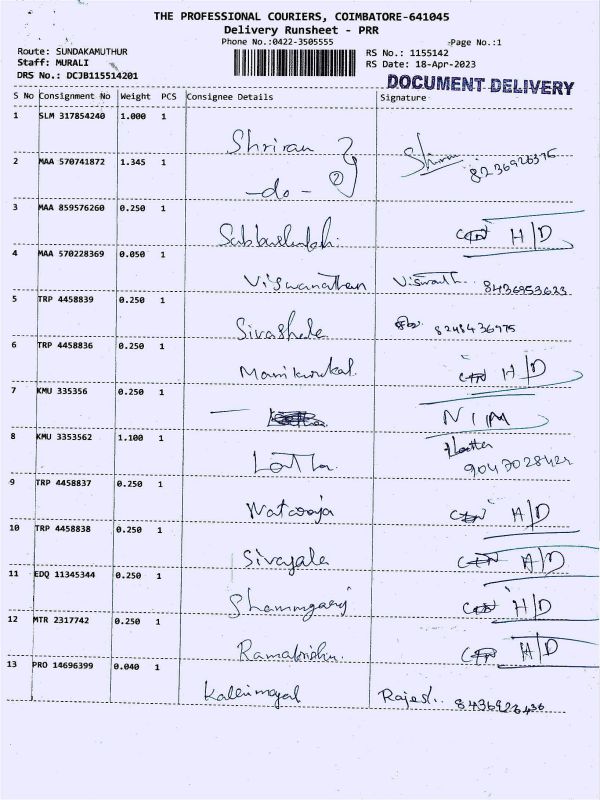 THE PROFESSIONAL COURIERS, COIMBATORE-641045
Delivery Runsheet - PRR
Phone No.:0422-3505555
Page No.:1
Route: SUNDAKAMUTHUR
RS No.: 1155142
Staff: MURALI
RS Date: 18-Apr-2023
DRS No.: DCJB115514201
DOCUMENT DELIVERY
S No Consignment No Weight PCS Consignee Details Signature
1 SLM 317854240 1.000 1 Shriram
2 MAA 570741872 1.345 1 -do- 2 8236926375
3 MAA 859576260 0.250 1 H/D
4 MAA 570228369 0.050 1 Viswanathan 8436953623
5 TRP 4458839 0.250 1 8248436975
6 TRP 4458836 0.250 1 H/D
7 KMU 335356 0.250 1 — NIM
8 KMU 3353562 1.100 1 Latha Latha 9047028424
9 TRP 4458837 0.250 1 Nataraja H/D
10 TRP 4458838 0.250 1 H/D
11 EDQ 11345344 0.250 1 H/D
12 MTR 2317742 0.250 1 H/D
13 PRO 14696399 0.040 1 8436926436